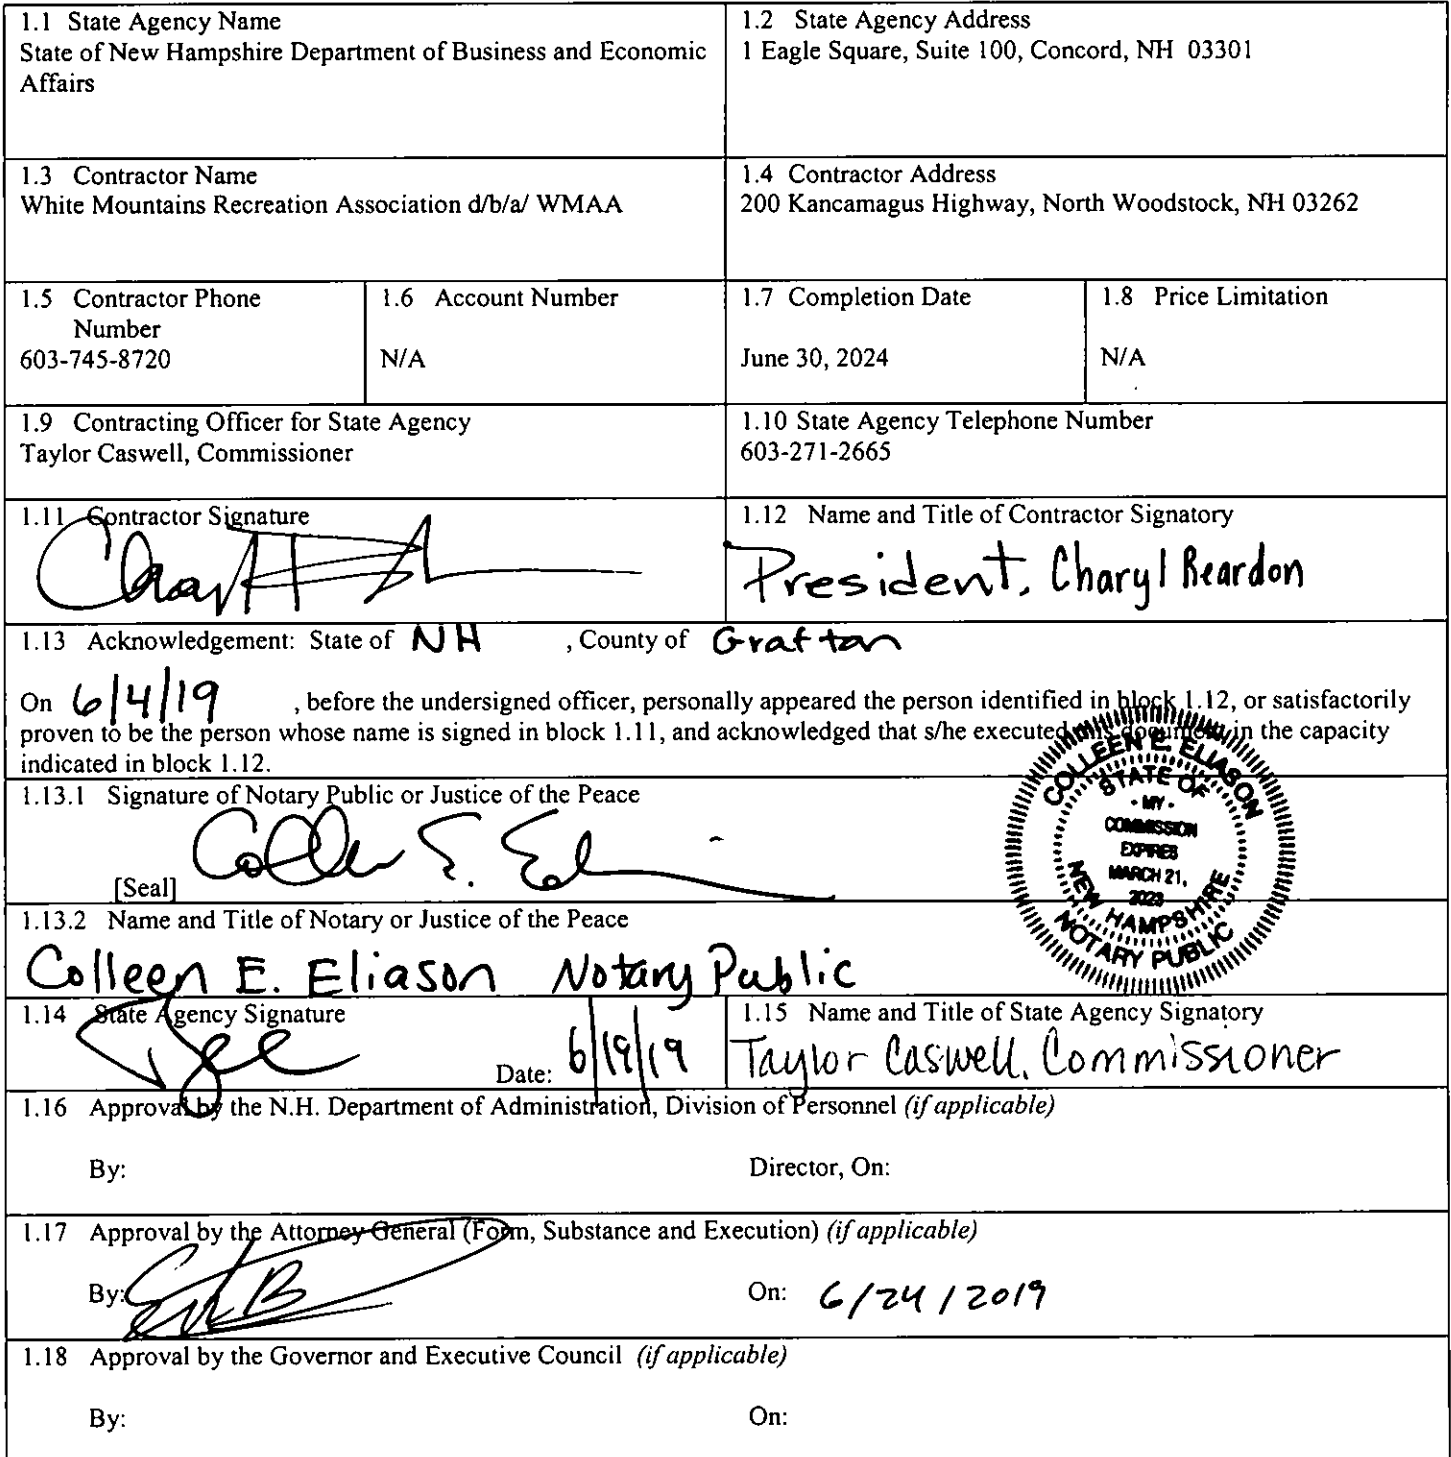 1.1 State Agency Name
State of New Hampshire Department of Business and Economic
Affairs
1.2 State Agency Address
1 Eagle Square, Suite 100, Concord, NH 03301
1.3 Contractor Name
White Mountains Recreation Association d/b/a/ WMAA
1.4 Contractor Address
200 Kancamagus Highway, North Woodstock, NH 03262
1.5 Contractor Phone
Number
603-745-8720
1.6 Account Number
N/A
1.7 Completion Date
June 30, 2024
1.8 Price Limitation
N/A
1.9 Contracting Officer for State Agency
Taylor Caswell, Commissioner
1.10 State Agency Telephone Number
603-271-2665
1.11 Contractor Signature
1.12 Name and Title of Contractor Signatory
President, Charyl Reardon
1.13 Acknowledgement: State of NH , County of Grafton
On 6/4/19 , before the undersigned officer, personally appeared the person identified in block 1.12, or satisfactorily
proven to be the person whose name is signed in block 1.11, and acknowledged that s/he executed this document in the capacity
indicated in block 1.12.
1.13.1 Signature of Notary Public or Justice of the Peace
[Seal]
COLLEEN E. ELIASON
STATE OF
- MY -
COMMISSION
EXPIRES
MARCH 21,
2023
NEW HAMPSHIRE
NOTARY PUBLIC
1.13.2 Name and Title of Notary or Justice of the Peace
Colleen E. Eliason Notary Public
1.14 State Agency Signature
Date: 6/19/19
1.15 Name and Title of State Agency Signatory
Taylor Caswell, Commissioner
1.16 Approval by the N.H. Department of Administration, Division of Personnel (if applicable)
By: Director, On:
1.17 Approval by the Attorney General (Form, Substance and Execution) (if applicable)
By: On: 6/24/2019
1.18 Approval by the Governor and Executive Council (if applicable)
By: On: